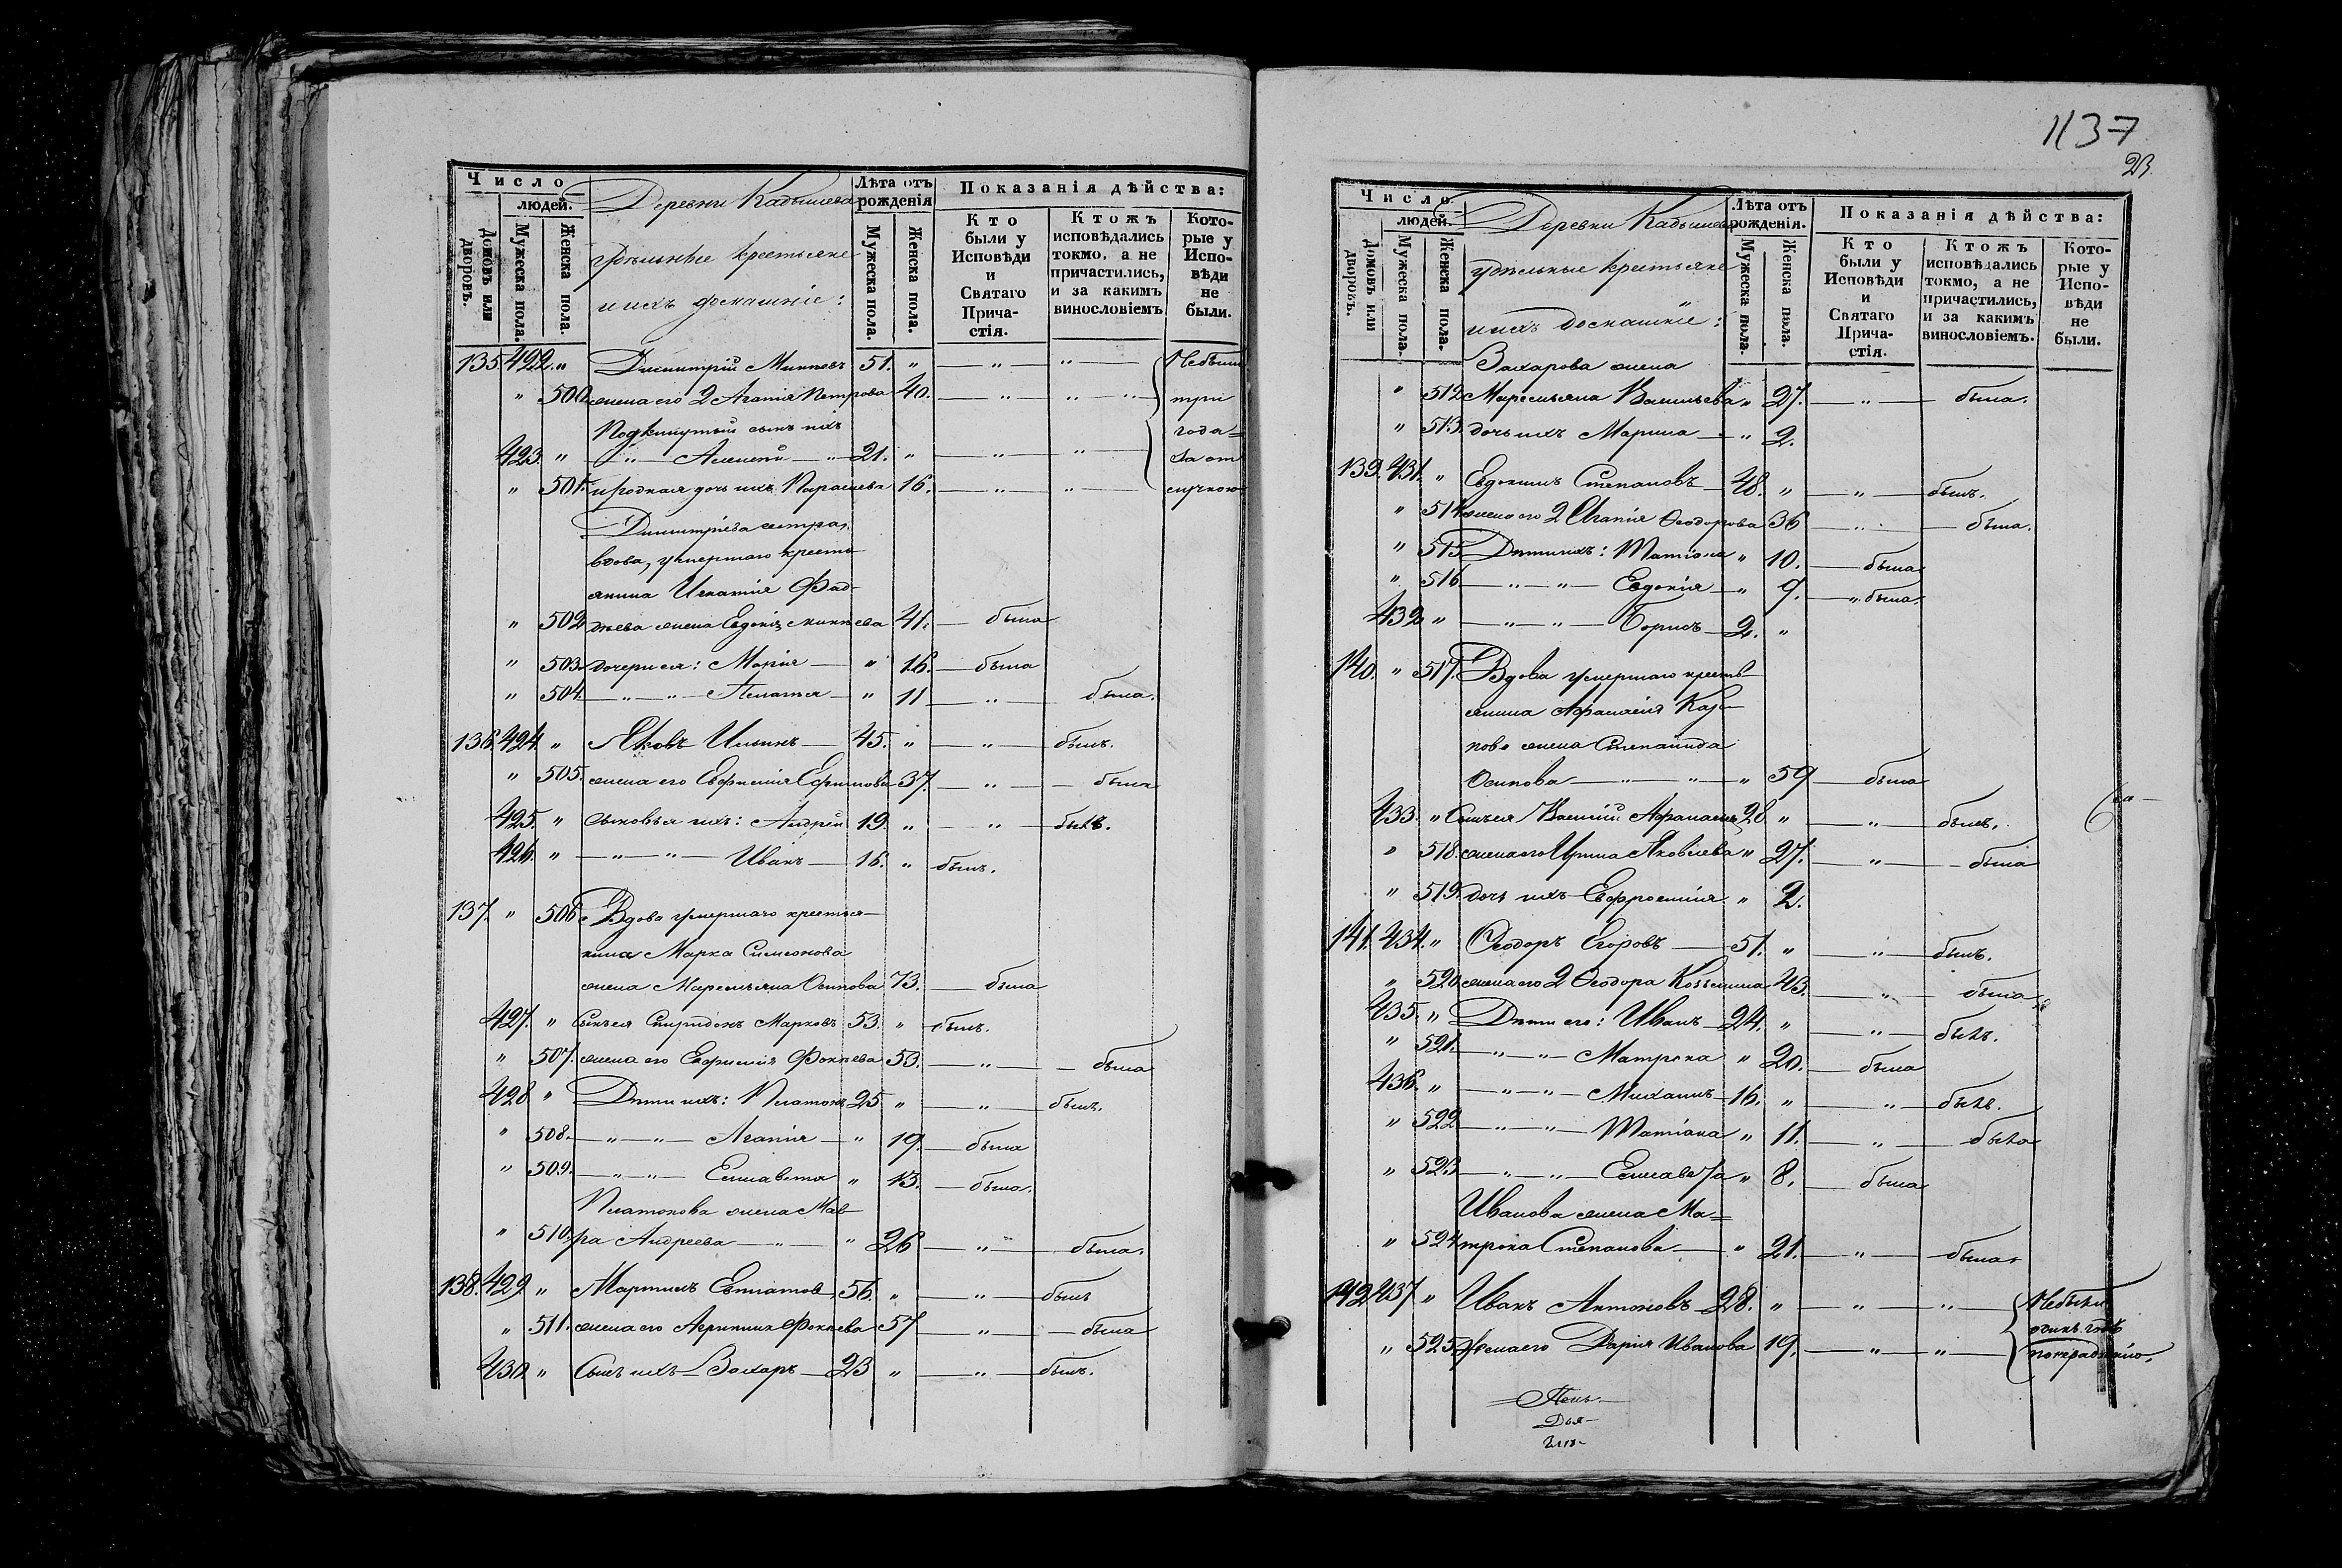 Число
людей.
Домовъ или дворовъ.
Мужеска пола.
Женска пола.
Деревни Кадышева
удѣльные крестьяне
и ихъ домашніе:
Лѣта отъ рожденія
Мужеска пола.
Женска пола.
Показанія дѣйства:
Кто были у Исповѣди и Святаго Причастія.
Ктожъ исповѣдались токмо, а не причастились, и за какимъ винословіемъ
Которые у Исповѣди не были.
135. 422. " Димитрій 51. " — " — " — Небыли
" 500. жена его 2 Агапія Петрова 40. — " — " " три
Подкинутый сынъ ихъ года=
423. " — " — Алексѣй — " 21. " — " — " — за от
" 501. и родная дочь ихъ Параскева 16. — " — " — лучкою
Димитріева сестра,
вдова, умершаго кресть-
янина Игнатія Фад-
" 502 дѣева жена Евдокія 41. — была
" 503. дочери ея: Марія — " 16. — была
" 504. — " — " — Пелагея — " 11 — " — была.
136. 424. " Яковъ Ильинъ — 45. " — " — былъ.
" 505. жена его Евфимія Ефимова 37. — " — была
425. " сыновья ихъ: Андрей 19. " — " — былъ.
426. " — " — " — Иванъ — 16. " былъ.
137. " 506. Вдова умершаго крестья-
нина Марка Симеонова
жена Маремьяна Осипова 73. — была
427. " Сынъ ея Спиридонъ Марковъ 53. " былъ.
" 507. жена его Евфимія Фокіева 53. — " — была
428. " Дѣти ихъ: Платонъ 25 " — " — былъ.
" 508. — " — " — Агапія — " 19. — была
" 509. — " — " — Елисавета " 13. — была.
Платонова жена Мав-
" 510. ра Андреева — " — " 26 — " — была.
138. 429. " Мартинъ 56. " — " — былъ
" 511. жена его Агрипина Фокіева 57 — " — была
430. " Сынъ ихъ — Захаръ — 23 " — " — былъ.
1137
23.
Число
людей.
Домовъ или дворовъ.
Мужеска пола.
Женска пола.
Деревни Кадышева
удѣльные крестьяне
и ихъ домашніе:
Лѣта отъ рожденія.
Мужеска пола.
Женска пола.
Показанія дѣйства:
Кто были у Исповѣди и Святаго Причастія.
Ктожъ исповѣдались токмо, а не причастились, и за какимъ винословіемъ.
Которые у Исповѣди не были.
Захарова жена
" 512. Маремьяна Васильева " 27. — " — была.
" 513. дочь ихъ Марина — " 2.
139. 431. " Евдокимъ Степановъ — 48. " — " — былъ.
" 514. жена его 2 Агапія Ѳеодорова 36 — " — была.
" 515. Дѣти ихъ: Татіана " 10. — была
" 516. — " — " — Евдокія — " 9. — " была.
432. " — " — " — Борисъ — 2. "
140. " 517. Вдова умершаго кресть-
янина Афанасія Кар-
пова жена Степанида
Осипова — " — " — " 59 — была
433. " Сынъ ея Василій Афанасьевъ 28 " — " — былъ.
" 518. жена его Ирина Яковлева " 27. — " — была
" 519. дочь ихъ Евфросинія " 2.
141. 434. " Ѳеодоръ Егоровъ — 51. " — " — былъ.
" 520. жена его 2 Ѳеодора Козьмина 43. — " — была
435. " Дѣти его: Иванъ — 24. " — " — былъ.
" 521. — " — " — Матрона " 20. — была
436. " — " — " — Михаилъ — 16. " — " — былъ.
" 522 — " — " — Татіана " 11. — " — была
" 523 — " — " — Елисавета " 8. — была
Иванова жена Ма=
" 524 трона Степанова — " 21. — " — была
142. 437 " Иванъ Антоновъ — 28. " — " — " — Небыли
одинъ годъ
" 525. Жена его Дарія Иванова 19. — " — " — понерадѣнію.